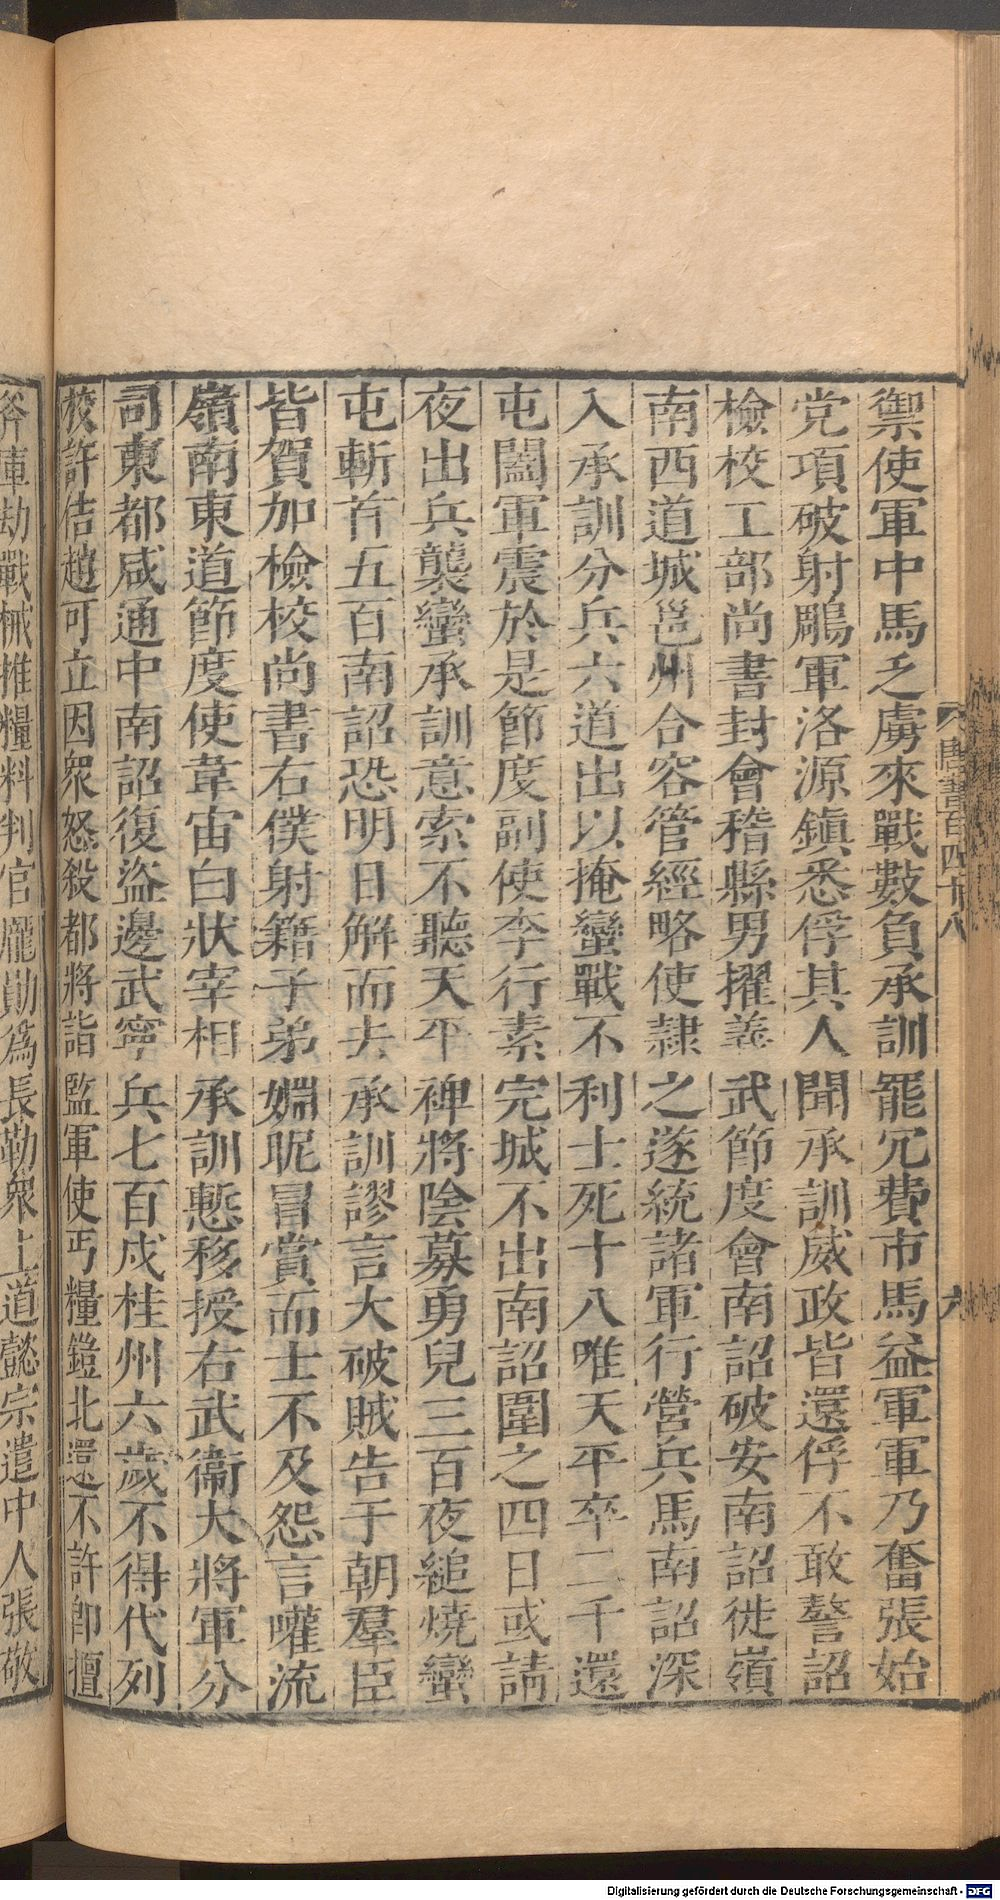 唐書百四十八
六
禦使軍中馬乏虜來戰數負承訓罷冗費市馬益軍軍乃奮張始
党項破射鵰軍洛源鎮悉俘其人聞承訓威政皆還俘不敢謷詔
檢校工部尚書封會稽縣男擢義武節度會南詔破安南詔徙嶺
南西道城邕州合容管經略使隷之遂統諸軍行營兵馬南詔深
入承訓分兵六道出以掩蠻戰不利士死十八唯天平卒二千還
屯闔軍震於是節度副使李行素完城不出南詔圍之四日或請
夜出兵襲蠻承訓意索不聽天平裨將陰募勇兒三百夜縋燒蠻
屯斬首五百南詔恐明日解而去承訓謬言大破賊告于朝羣臣
皆賀加檢校尚書右僕射籍子弟姻昵冒賞而士不及怨言嚾流
嶺南東道節度使韋宙白狀宰相承訓慙移授右武衞大將軍分
司東都咸通中南詔復盜邊武寧兵七百戍桂州六歲不得代列
校許佶趙可立因衆怒殺都將詣監軍使丐糧鎧北還不許卽擅
斧庫劫戰械推糧料判官龐勛為長勒衆上道懿宗遣中人張敬
Digitalisierung gefördert durch die Deutsche Forschungsgemeinschaft - DFG